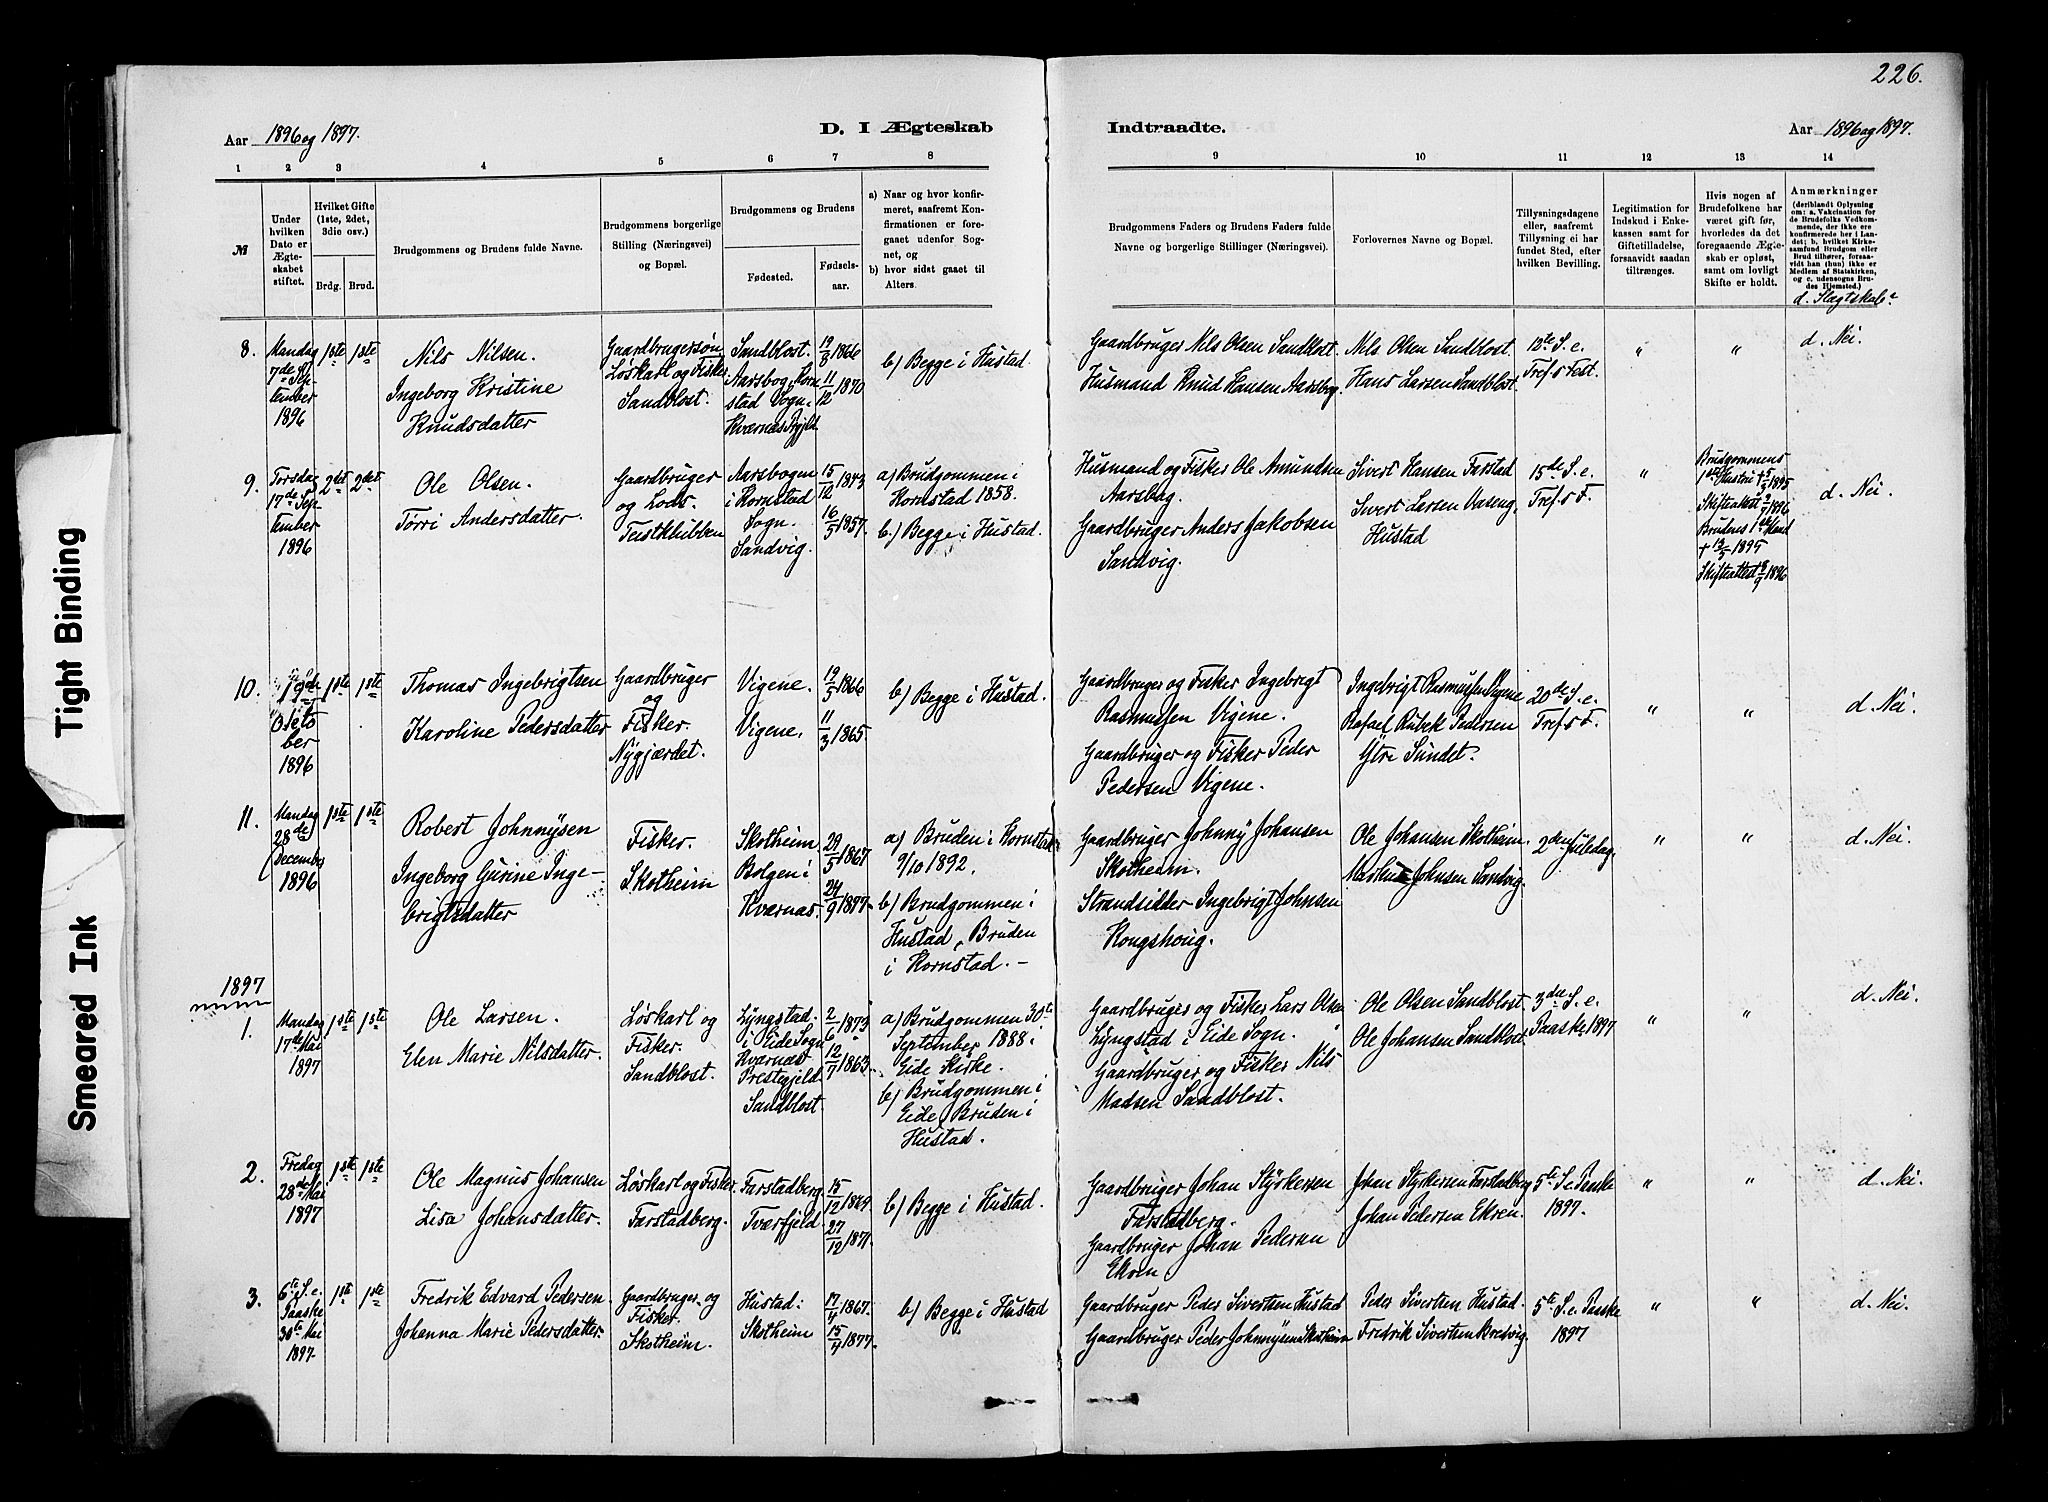 226.
Aar 1896 og 1897.
D. I Ægteskab
Indtraadte.
Aar 1896 og 1897.
1 2 3 4 5 6 7 8
9 10 11 12 13 14
№
Under
hvilken
Dato er
Ægte-
skabet
stiftet.
Hvilket Gifte
(1ste, 2det,
3die osv.)
Brdg. Brud.
Brudgommens og Brudens fulde Navne.
Brudgommens borgerlige
Stilling (Næringsvei)
og Bopæl.
Brudgommens og Brudens
Fødested.
Fødsels-
aar.
a) Naar og hvor konfir-
meret, saafremt Kon-
firmationen er fore-
gaaet udenfor Sog-
net, og
b) hvor sidst gaaet til
Alters.
Brudgommens Faders og Brudens Faders fulde
Navne og borgerlige Stillinger (Næringsvei).
Forlovernes Navne og Bopæl.
Tillysningsdagene
eller, saafremt
Tillysning ei har
fundet Sted, efter
hvilken Bevilling.
Legitimation for
Indskud i Enke-
kassen samt for
Giftetilladelse,
forsaavidt saadan
tiltrænges.
Hvis nogen af
Brudefolkene har
været gift før,
hvorledes da det
foregaaende Ægte-
skab er opløst,
samt om lovligt
Skifte er holdt.
Anmærkninger
(deriblandt Oplysning
om: a. Vakcination for
de Brudefolks Vedkom-
mende, der ikke ere
konfirmerede her i Lan-
det; b. hvilket Kirke-
samfund Brudgom eller
Brud tilhører, forsaa-
vidt han (hun) ikke er
Medlem af Statskirken,
og c. udensogns Bru-
des Hjemsted.)
d. Slægtskab
8.
Mandag
7de Sep-
tember
1896
1ste 1ste
Nils Nilsen.
Ingeborg Kristine
Knudsdatter
Gaardbrugersøn
Løskarl og Fisker
Sandblost.
Sandblost.
Aarsbog i Korn-
stad Sogn.
Kværnæs Pgjld
19/8 1866
11/12 1870
b) Begge i Hustad
Gaardbruger Nils Olsen Sandblost.
Husmand Knud Hansen Aarsbog.
Nils Olsen Sandblost.
Hans Larsen Sandblost.
12te S. e.
Tref.s Fest.
"
"
d. Nei.
9.
Torsdag
17de Sep-
tember
1896
2det 2det
Ole Olsen.
Torri Andersdatter.
Gaardbruger
og Lods.
Teistklubben
Aarsbogen
i Kornstad
Sogn.
Sandvig.
15/12 1843
16/5 1857.
a) Brudgommen i
Kornstad 1858.
b.) Begge i Hustad.
Husmand og Fisker Ole Amundsen
Aarsbog.
Gaardbruger Anders Jakobsen
Sandvig.
Sivert Hansen Farstad
Sivert Larsen Vaseng,
Hustad
15de S. e.
Tref.s F.
"
Brudgommens
1ste Hustru † 5/3 1895
Skifteattest 2/7 1896
Brudens 1ste Mand
† 13/3 1895
Skifteattest 8/9 1896
d. Nei.
10.
19de
Okto
ber
1896
1ste 1ste
Thomas Ingebrigtsen
Karoline Pedersdatter
Gaardbruger
og
Fisker.
Nygjærdet.
Vigene.
Vigene.
19/5 1866
11/3 1865
b) Begge i Hustad.
Gaardbruger og Fisker Ingebrigt
Rasmussen Vigene.
Gaardbruger og Fisker Peder
Pedersen Vigene.
Ingebrigt Rasmussen Vigene
Rafael Rubek Pedersen
Ytre Sundet.
20de S. e.
Tref.s F.
"
"
d. Nei.
11.
Mandag
28de
December
1896
1ste 1ste
Robert Johnnysen
Ingeborg Gurine Inge-
brigtsdatter
Fisker.
Skotheim
Skotheim
Bolgen i
Kværnæs.
29/5 1867
24/9 1877.
a) Bruden i Kornstad
9/10 1892.
b) Brudgommen i
Hustad, Bruden
i Kornstad. –
Gaardbruger Johnny Johansen
Skotheim.
Strandsidder Ingebrigt Johnsen
Kongshoug.
Ole Johansen Skotheim.
Johnsen Sandvig.
2den Juledag.
"
"
d. Nei.
1897
1.
Mandag
17de Mai
1897
1ste 1ste
Ole Larsen.
Elen Marie Nilsdatter.
Løskarl og
Fisker.
Sandblost.
Lyngstad.
i Eide Sogn
Kværnæs
Prestegjeld
Sandblost
2/6 1873
12/7 1863.
a) Brudgommen 30te
September 1888 i
Eide Kirke.
b) Brudgommen i
Eide, Bruden i
Hustad.
Gaardbruger og Fisker Lars Olsen
Lyngstad i Eide Sogn.
Gaardbruger og Fisker Nils
Madsen Sandblost.
Ole Olsen Sandblost.
Ole Johansen Sandblost
3die S. e.
Paaske 1897
"
"
d. Nei.
2.
Fredag
28de Mai
1897
1ste 1ste
Ole Magnus Johansen
Lisa Johansdatter.
Løskarl og Fisker.
Farstadberg.
Farstadberg.
Tværfjeld.
15/12 1869
27/12 1871.
b) Begge i Hustad.
Gaardbruger Johan Styrkersen
Farstadberg.
Gaardbruger Johan Pedersen
Ekren
Johan Styrkersen Farstadberg
Johan Pedersen Ekren.
5te S. e. Paaske
1897.
"
"
d. Nei.
3.
6te S. e.
Paaske
30te Mai
1897.
1ste 1ste
Fredrik Edvard Pedersen.
Johanna Marie Pedersdatter.
Gaardbruger og
Fisker.
Skotheim.
Hustad.
Skotheim
17/4 1867.
15/4 1877.
b) Begge i Hustad
Gaardbruger Peder Sivertsen Hustad
Gaardbruger Peder Johnnysen Skotheim
Peder Sivertsen Hustad.
Fredrik Sivertsen
5te S. e. Paaske
1897
"
"
d. Nei.
Tight Binding
Smeared Ink